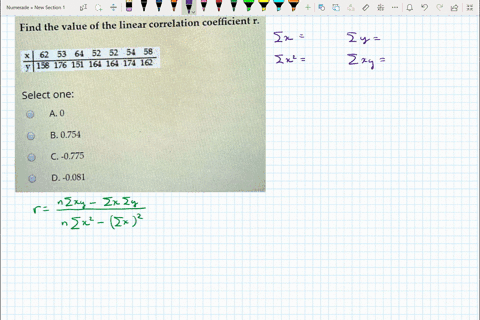 Numerade » New Section 1
Find the value of the linear correlation coefficient r.
x 62 53 64 52 52 54 58
y 158 176 151 164 164 174 162
Select one:
A. 0
B. 0.754
C. -0.775
D. -0.081
Σx =
Σy =
Σx² =
Σxy =
r = nΣxy - ΣxΣy / nΣx² - (Σx)²